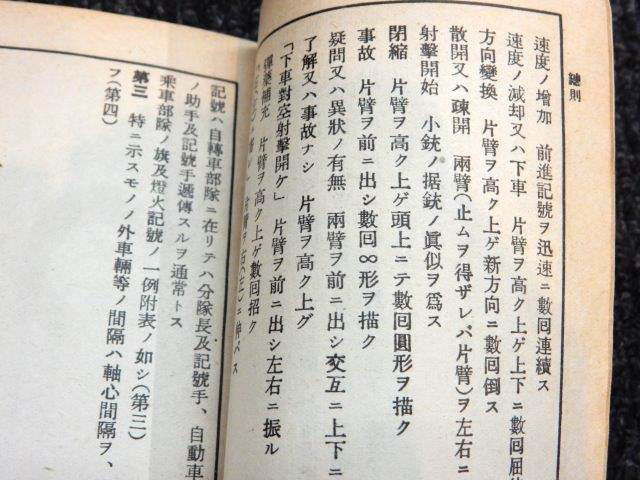 總則
速度ノ增加　前進記號ヲ迅速ニ數回連續ス
速度ノ減却又ハ下車　片臂ヲ高ク上ゲ上下ニ數回屈
方向變換　片臂ヲ高ク上ゲ新方向ニ數回倒ス
散開又ハ疎開　兩臂(止ムヲ得ザレバ片臂)ヲ左右ニ
射擊開始　小銃ノ据銃ノ眞似ヲ爲ス
閉縮　片臂ヲ高ク上ゲ頭上ニテ數回圓形ヲ描ク
事故　片臂ヲ前ニ出シ數回∞形ヲ描ク
疑問又ハ異狀ノ有無　兩臂ヲ前ニ出シ交互ニ上下ニ
了解又ハ事故ナシ　片臂ヲ高ク上グ
「下車對空射擊開ケ」　片臂ヲ前ニ出シ左右ニ振ル
彈藥補充　片臂ヲ高ク上ゲ數回招ク
右(左)ニ伸バス
記號ハ自轉車部隊ニ在リテハ分隊長及記號手、自動車
ノ助手及記號手遞傳スルヲ通常トス
乘車部隊ノ旗及燈火記號ノ一例附表ノ如シ(第三)
第三　特ニ示スモノノ外車輛等ノ間隔ハ軸心間隔ヲ、
フ(第四)